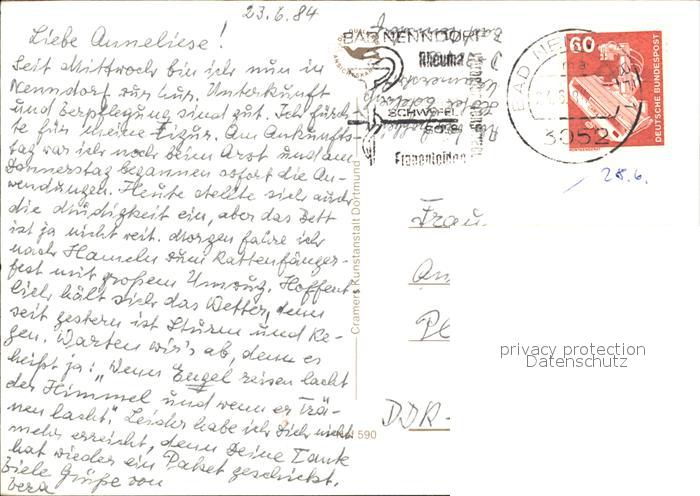 23.6.84
Liebe Anneliese!
Seit Mittwoch bin ich nun in
Nenndorf zur Kur. Unterkunft
und Verpflegung sind gut. Ich fürch-
te für meine Figur. Am Ankunfts-
tag war ich noch beim Arzt und am
Donnerstag begannen sofort die An-
wendungen. Heute stellte sich auch
die Müdigkeit ein, aber das Bett
ist ja nicht weit. Morgen fahre ich
nach Hameln zum Rattenfänger-
fest mit großem Umzug. Hoffent-
lich hält sich das Wetter, denn
seit gestern ist Sturm und Re-
gen. Warten wir's ab, denn es
heißt ja: "Wenn Engel reisen lacht
der Himmel und wenn er Trä-
nen lacht." Leider habe ich Dich nicht
mehr erreicht, denn Deine Tante
hat wieder ein Paket geschickt.
Viele Grüße von
Vera
Cramers Kunstanstalt Dortmund
590
BAD NENNDORF
Rheuma
SCHWEFEL
SOLE
Frauenleiden
BAD NE
3052
60
DEUTSCHE BUNDESPOST
28.6.
Frau
An
Pl
DDR-
privacy protection
Datenschutz